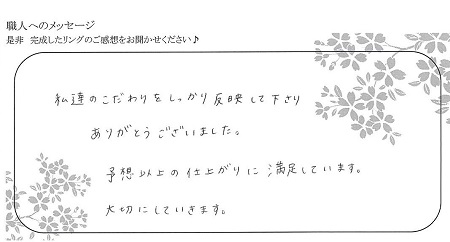 職人へのメッセージ
是非 完成したリングのご感想をお聞かせください♪
私達のこだわりをしっかり反映して下さり
ありがとうございました。
予想以上の仕上がりに満足しています。
大切にしていきます。